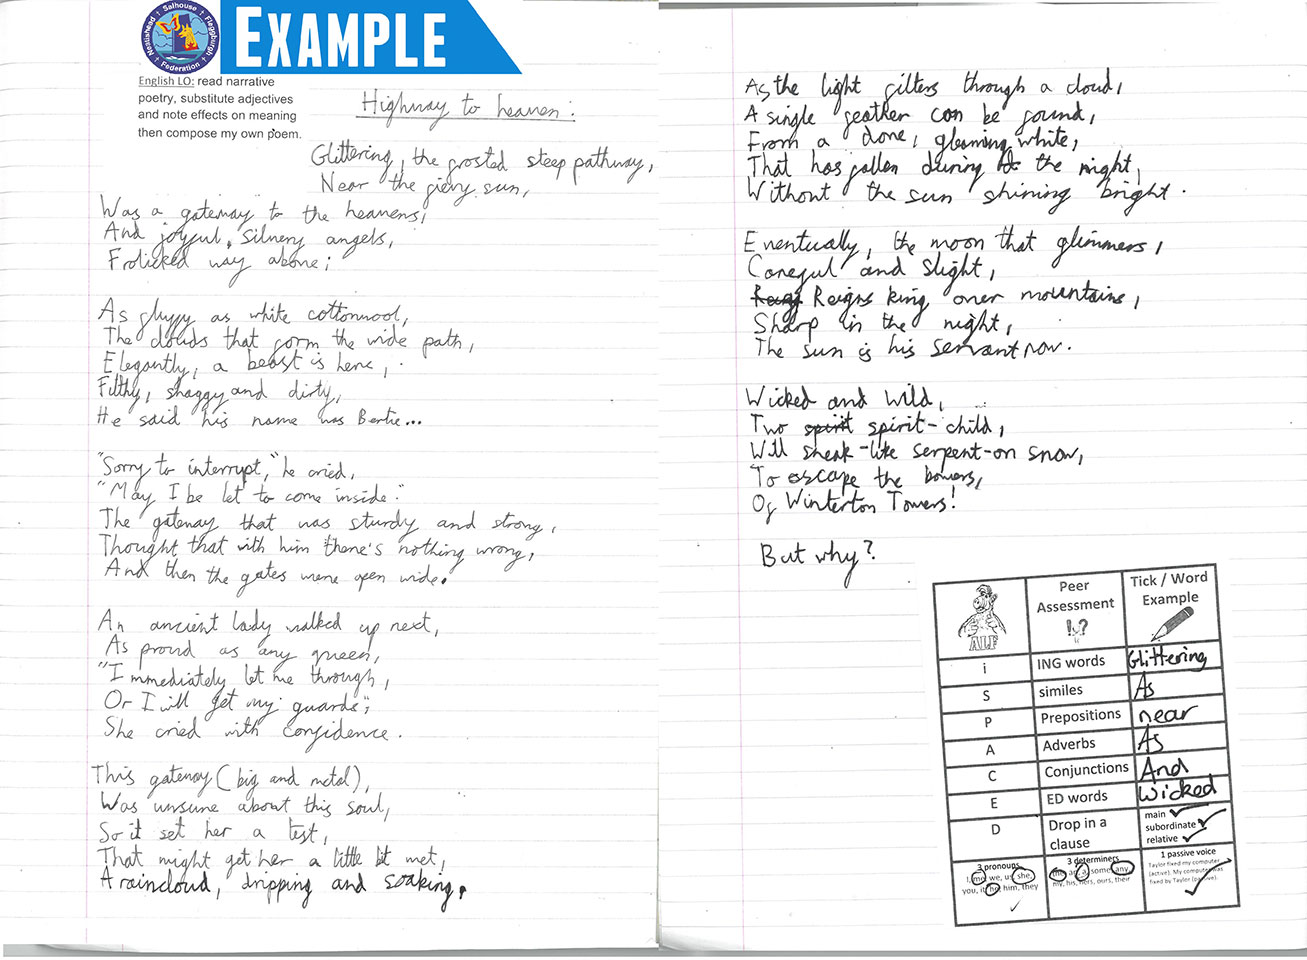 Neatishead Salhouse Fleggburgh Federation
EXAMPLE
English LO: read narrative
poetry, substitute adjectives
and note effects on meaning
then compose my own poem.
Highway to heaven:
Glittering, the frosted steep pathway,
Near the fiery sun,
Was a gateway to the heavens,
And joyful, silvery angels,
Frolicked way above;
As fluffy as white cottonwool,
The clouds that form the wide path,
Elegantly, a beast is here,
Filthy, shaggy and dirty,
He said his name was Bertie...
"Sorry to interrupt," he cried,
"May I be let to come inside."
The gateway that was sturdy and strong,
Thought that with him there's nothing wrong,
And then the gates were open wide.
An ancient lady walked up next,
As proud as any queen,
"Immediately let me through,
Or I will get my guards",
She cried with confidence.
This gateway (big and metal),
Was unsure about this soul,
So it set her a test,
That might get her a little bit wet,
A raincloud, dripping and soaking.
As the light filters through a cloud,
A single feather can be found,
From a dove, gleaming white,
That has fallen during the night,
Without the sun shining bright.
Eventually, the moon that glimmers,
Careful and slight,
Reigns king over mountains,
Sharp in the night,
The sun is his servant now.
Wicked and wild,
Two spirit-child,
Will sneak-like serpent-on snow,
To escape the bowers,
Of Winterton Towers!
But why?
ALF
Peer Assessment
!.?
Tick / Word Example
i ING words Glittering
S similes As
P Prepositions near
A Adverbs As
C Conjunctions And
E ED words Wicked
D Drop in a clause main subordinate relative
3 pronouns
I, me, we, us, she,
you, it, he, him, they
3 determiners
the, an, a, some, any,
my, his, hers, ours, their
1 passive voice
Taylor fixed my computer
(active). My computer was
fixed by Taylor (passive).